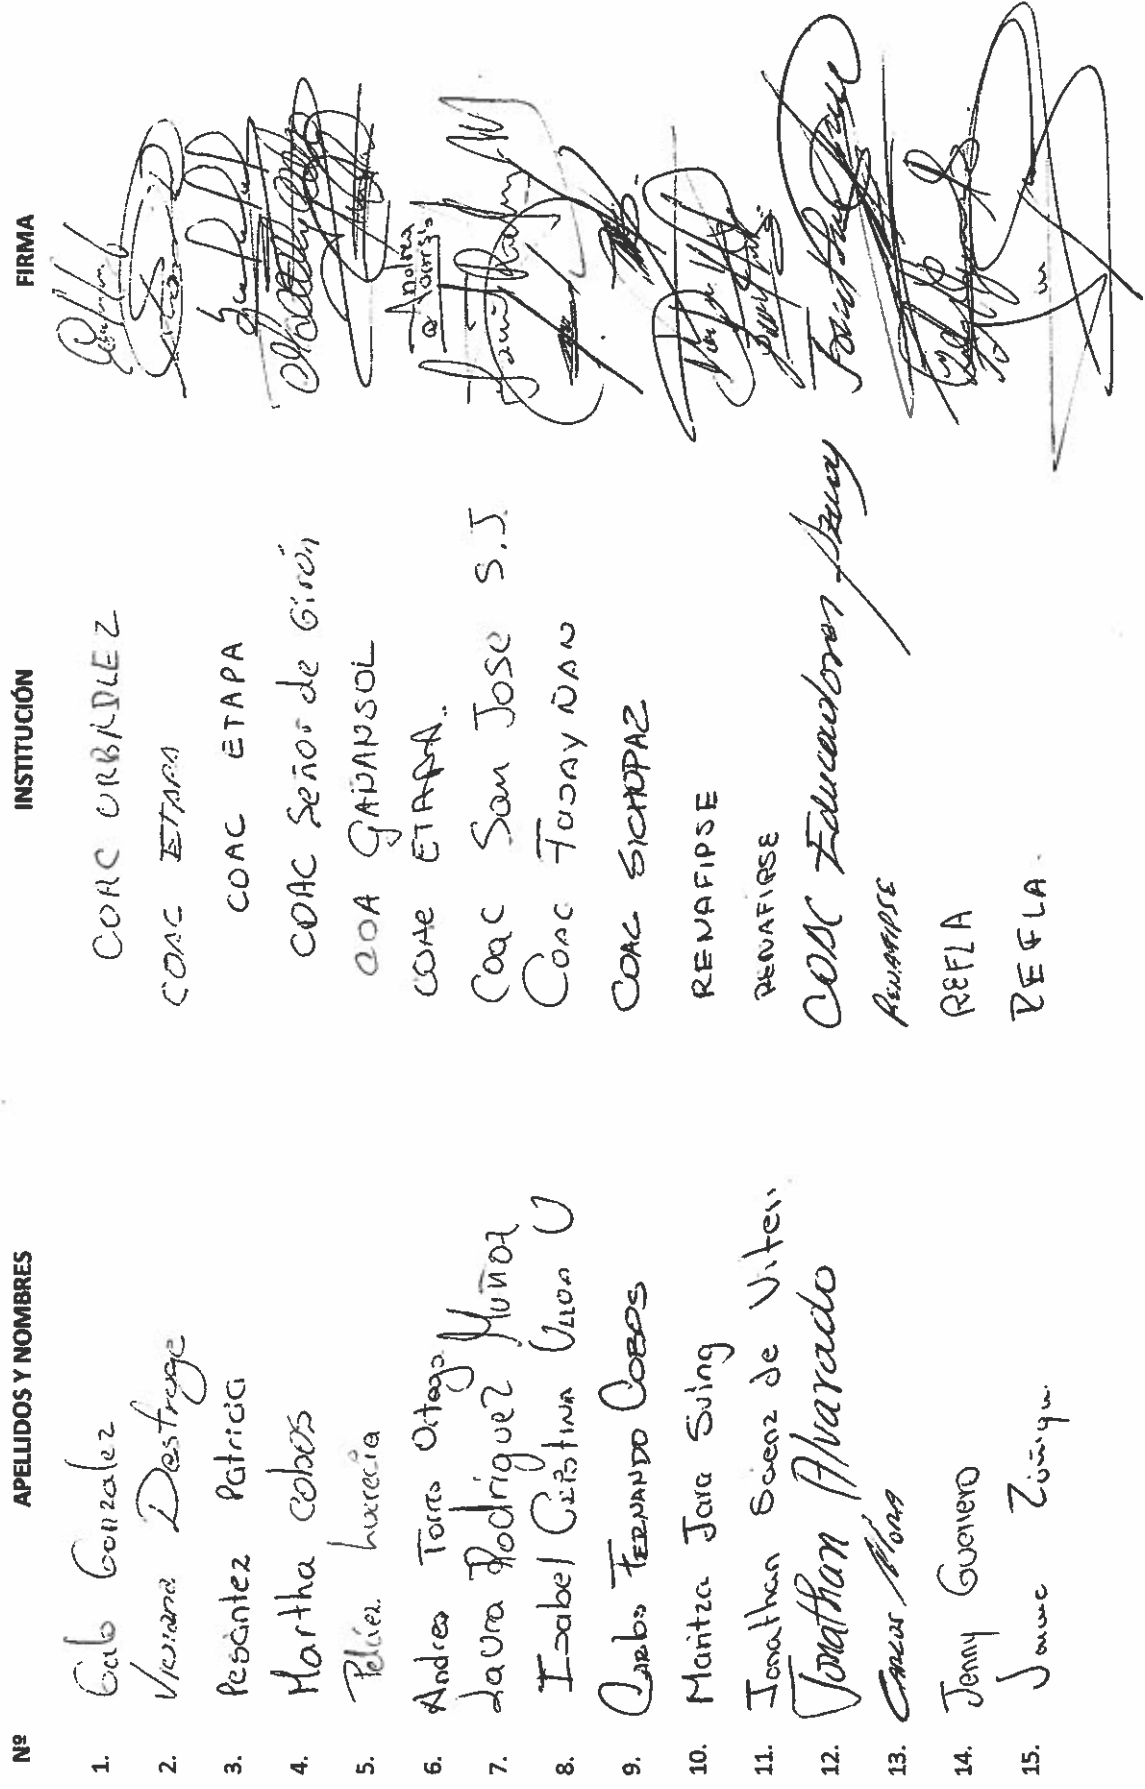 Nº APELLIDOS Y NOMBRES INSTITUCIÓN FIRMA
1. Galo Gonzalez COAC
2. Viviana Destruge COAC ETAPA
3. Pesántez Patricia COAC ETAPA
4. Martha Cobos COAC Señor de Girón
5. Peláez Lucrecia COA GAÑANSOL
6. Andrea Torres Ortega COAC ETAPA. Andrea Torres O
7. Laura Rodríguez Muñoz Coac San Jose S.J
8. Isabel Cristina Ulloa U COAC
9. Carlos Fernando Cobos COAC SICHOPAZ
10. Maritza Jara Suing RENAFIPSE
11. Jonathan Sáenz de Viteri RENAFIPSE
12. Jonathan Alvarado COAC Educadores Azuay
13. Carlos Mora RENAFIPSE
14. Jenny Guerrero REFLA
15. Jaime Zúñiga. REFLA.